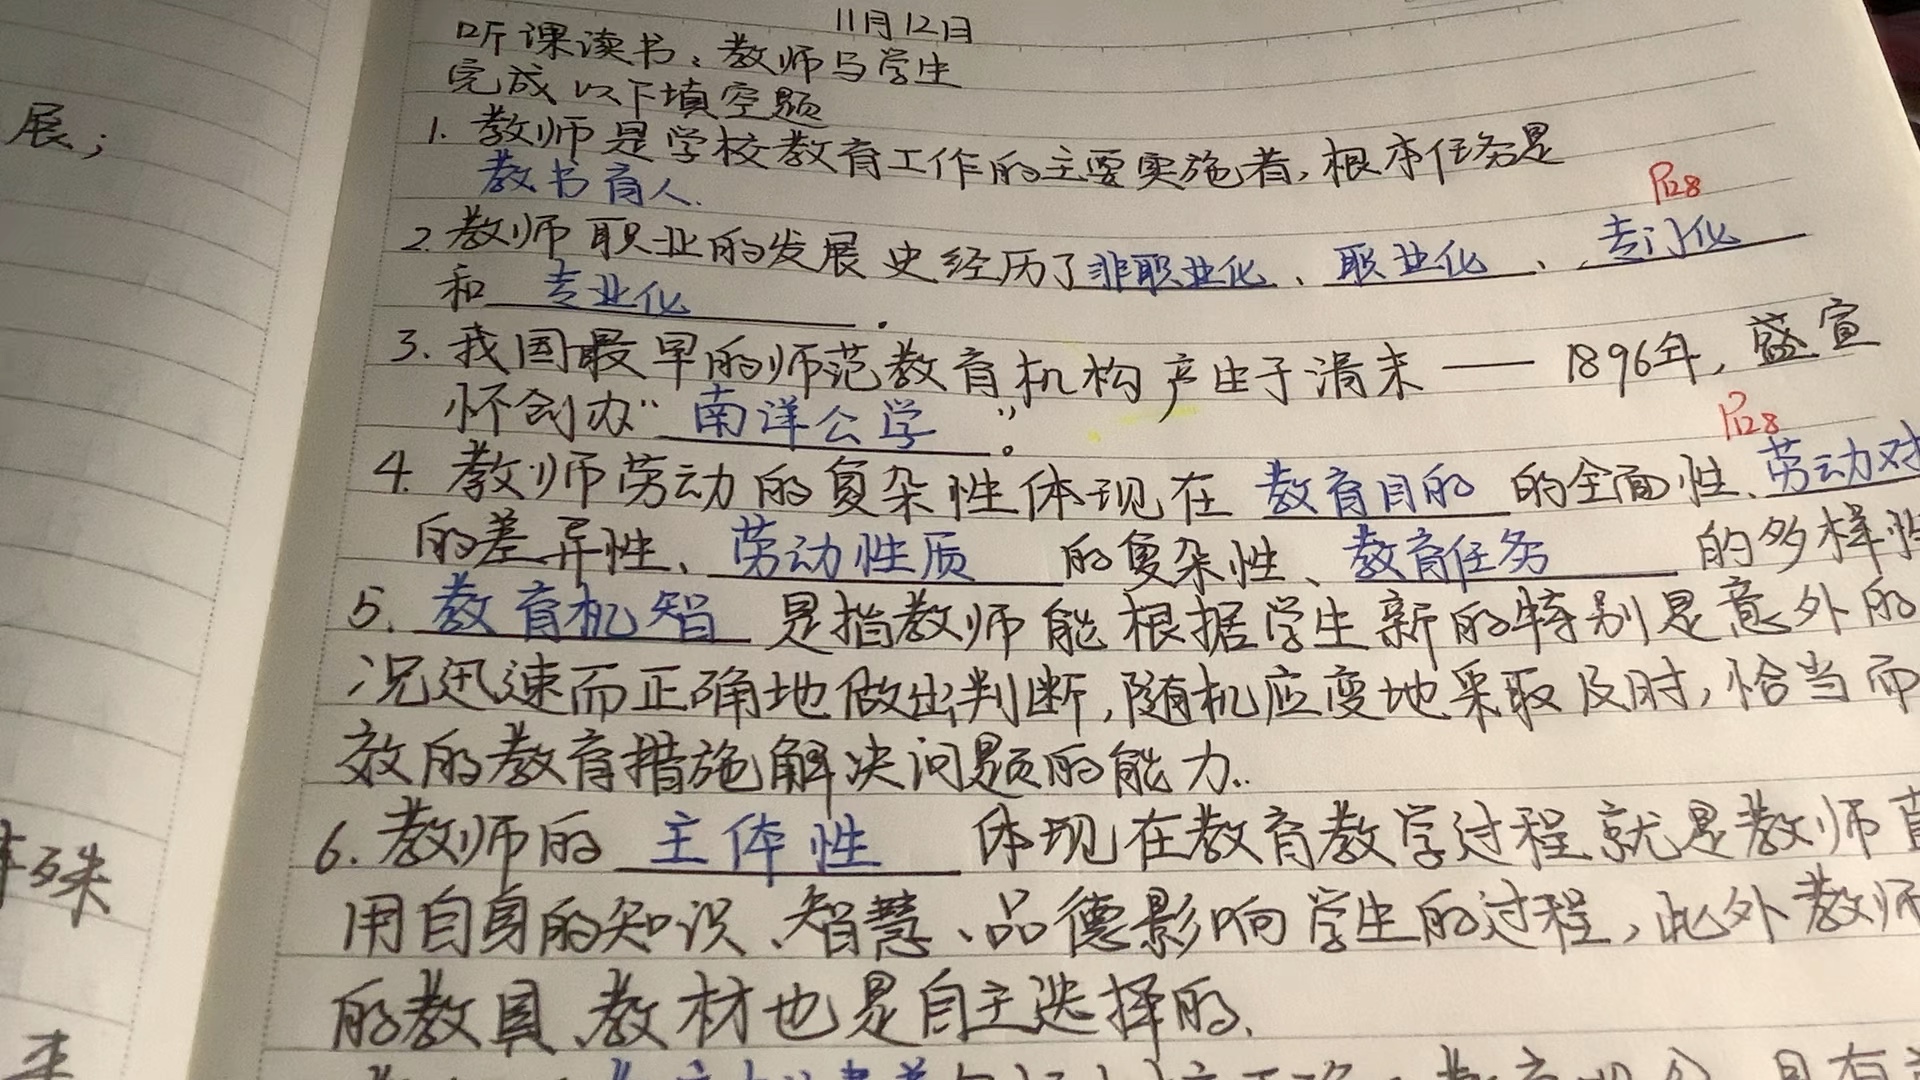 展；
殊
11月12日
听课读书：教师与学生
完成以下填空题
1. 教师是学校教育工作的主要实施者，根本任务是
教书育人.
P128
2. 教师职业的发展史经历了非职业化、职业化、专门化
和 专业化.
3. 我国最早的师范教育机构产生于清末——1896年，盛宣
怀创办“南洋公学”。
P128
4. 教师劳动的复杂性体现在 教育目的 的全面性、劳动对
的差异性、劳动性质 的复杂性、教育任务 的多样性
5. 教育机智 是指教师能根据学生新的特别是意外的
况迅速而正确地做出判断，随机应变地采取及时，恰当而
效的教育措施解决问题的能力..
6. 教师的 主体性 体现在教育教学过程就是教师
用自身的知识、智慧、品德影响学生的过程，此外教师
的教具、教材也是自主选择的.